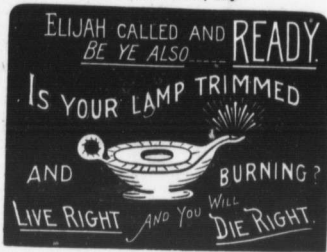 ELIJAH CALLED AND READY.
BE YE ALSO
IS YOUR LAMP TRIMMED
AND BURNING?
LIVE RIGHT AND YOU WILL DIE RIGHT.